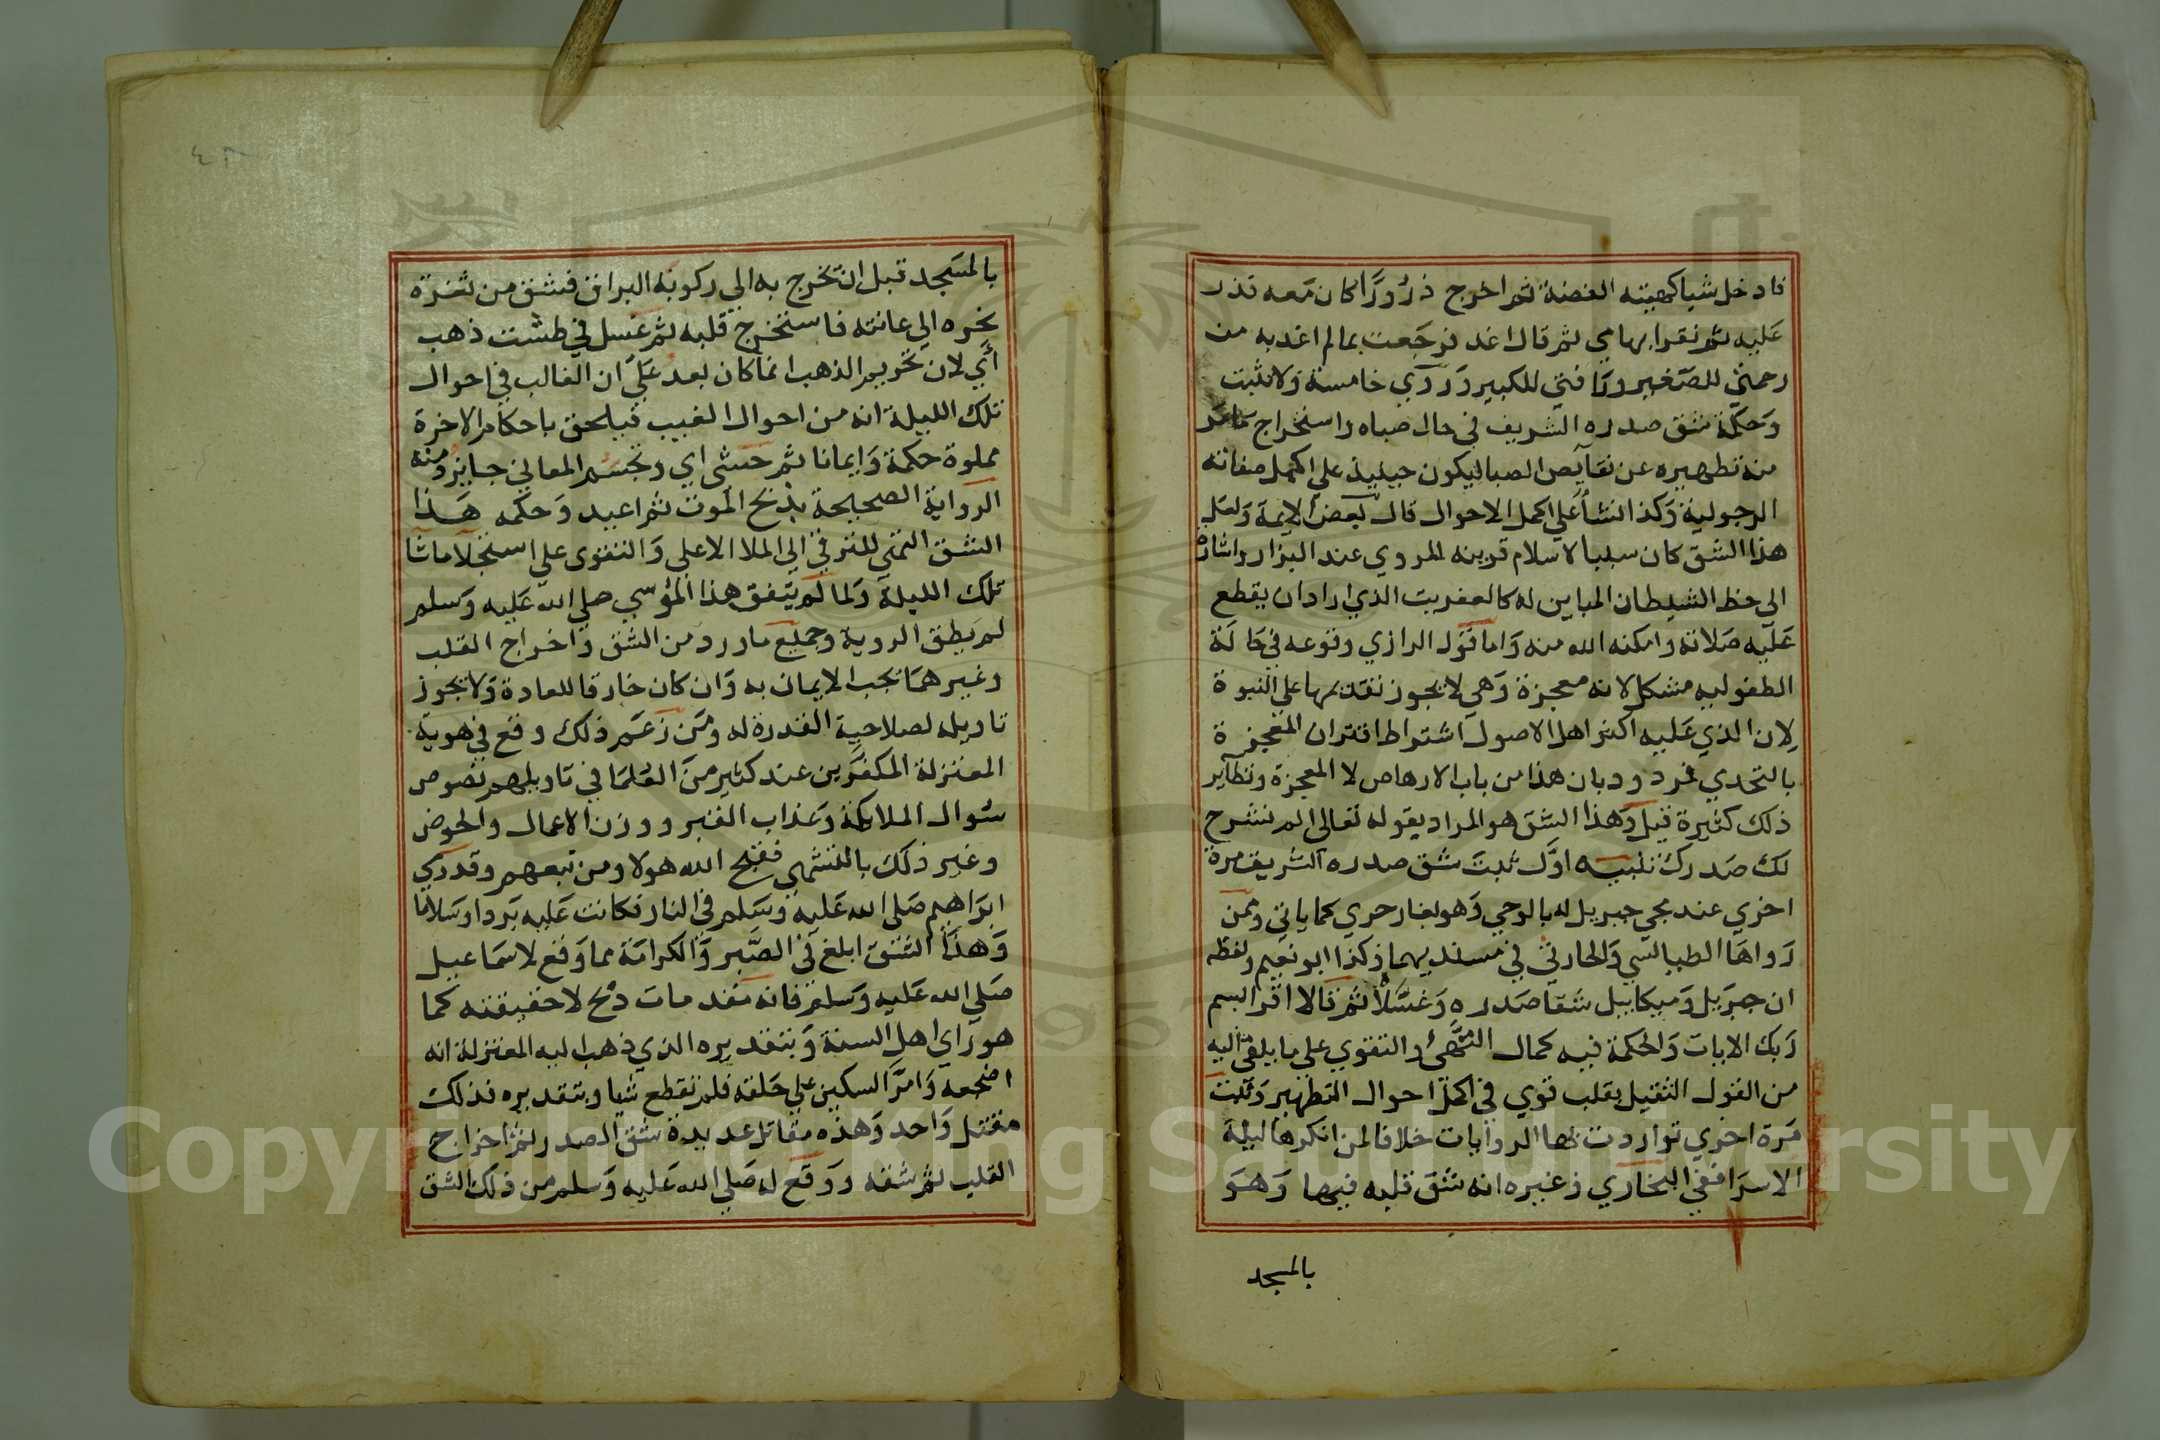 فادخل شيا كهيته الفضة ثم اخرج ذرورا كان معه فذر
عليه ثم نقر ابهامي ثم قال اغد فرجعت بمالم اغد به من
رحمتي للصغير ورافتي للكبير وروي خامسة ولا تثبت
وحكمة شق صدره الشريف في حال صباه واستخراج مامر
منه تطهيره عن نقايص الصبا ليكون حينيذ علي اكمل صفاته
الرجولية وكذا نشا علي اكمل الاحوال قال بعض الايمة ولعل
هذا الشق كان سببا لاسلام قرينه المروي عند البزار واشارة
الى حظ الشيطان المباين له كالعفريت الذي اراد ان يقطع
عليه صلاته وامكنه الله منه واما قول الرازي وقوعه في حالة
الطفوليه مشكل لانه معجزة وهي لا يجوز تقديمها على النبوة
لان الذي عليه اكثر اهل الاصول اشتراط اقتران المعجزة
بالتحدي فمردود بان هذا من باب الارهاص لا المعجزة ونظاير
ذلك كثيرة قيل وهذا الشق هو المراد بقوله تعالى الم نشرح
لك صدرك تنبيه اول ثبت شق صدره الشريف مرة
اخري عند مجي جبريل له بالوحي وهو بغار حري كما ياتي وممن
رواها الطيالسي والحارثي في مسنديهما وكذا ابو نعيم ولفظه
ان جبريل وميكاييل شقا صدره وغسلا ثم قالا اقرا باسم
ربك الايات والحكمة فيه كمال التهيئ والتقوي على ما يلقى اليه
من القول الثقيل بقلب قوي في اكمل احوال التطهير وثبت
مرة اخري تواردت بها الروايات خلافا لمن انكرها ليلة
الاسرا ففي البخاري وغيره انه شق قلبه فيها وهو
بالمسجد
٤٢
بالمسجد قبل ان تخرج به الي ركوبه البراق فشق من ثغرة
نحره الي عانته فاستخرج قلبه ثم غسل في طشت ذهب
أي لان تحريم الذهب انما كان بعد علي ان الغالب في احوال
تلك الليلة انه من احوال الغيب فيلحق باحكام الاخرة
مملوة حكمة وايمانا ثم حشى اي وتجسم المعاني جايز ومنه
الرواية الصحيحة بذبح الموت ثم اعيد وحكمه هذا
الشق التهي للترقي الي الملا الاعلي والتقوي علي استجلا ماشا
تلك الليلة ولما لم يتفق هذا لموسي صلي الله عليه وسلم
لم يطق الروية وجميع ما ورد من الشق واخراج القلب
وغيرهما يجب الايمان به وان كان خارقا للعادة ولا يجوز
تاويله لصلاحية القدرة له ومن زعم ذلك وقع في هوية
المعتزلة المكفرين عند كثير من العلما في تاويلهم نصوص
سوال الملايكة وعذاب القبر ووزن الاعمال والحوض
وغير ذلك بالتشهي فقبح الله هولا ومن تبعهم وقد رمي
ابراهيم صلي الله عليه وسلم في النار فكانت عليه بردا وسلاما
وهذا الشق ابلغ في الصبر والكرامة مما وقع لاسماعيل
صلي الله عليه وسلم فانه مقدمات ذبح لا حقيقته كما
هو راي اهل السنة وبتقديره الذي ذهب اليه المعتزلة انه
اضجعه وامر السكين علي حلقه فلم تقطع شيا وبتقديره فذلك
مقتل واحد وهذه مقاتل عديدة شق الصدر ثم اخراج
القلب ثم شقه ووقع له صلي الله عليه وسلم من ذلك الشق
Copyright © King Saud University
1957